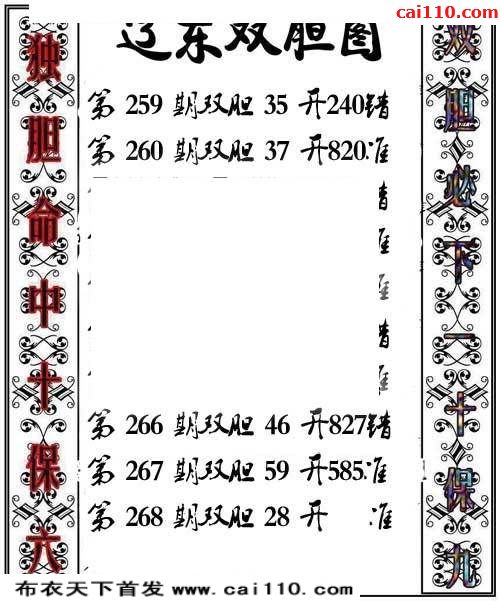 cai110.com
辽东双胆图
独胆命中十保六
双胆必下一十保九
第 259 期双胆 35 开240错
第 260 期双胆 37 开820准
错
准
准
错
准
第 266 期双胆 46 开827错
第 267 期双胆 59 开585准
第 268 期双胆 28 开 准
布衣天下首发 www.cai110.com